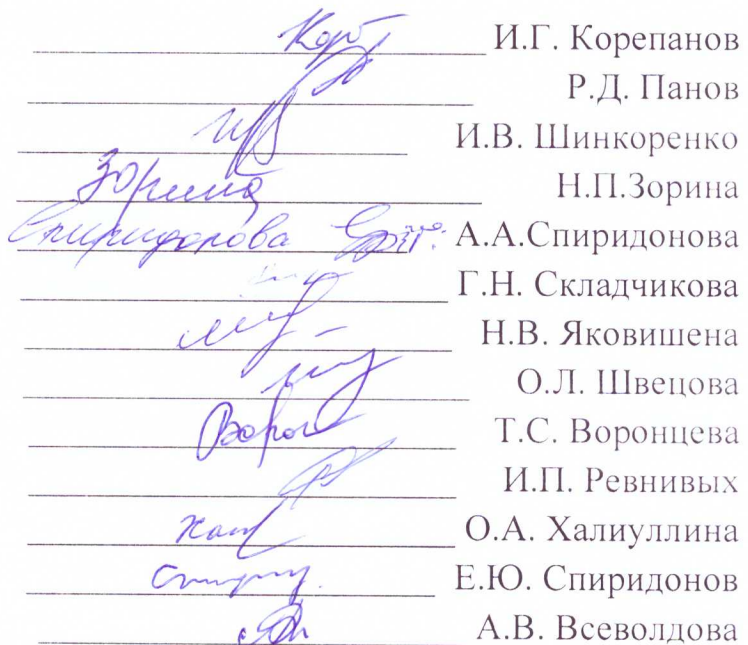 И.Г. Корепанов
Р.Д. Панов
И.В. Шинкоренко
Зорина Н.П.Зорина
Спиридонова А.А.Спиридонова
Г.Н. Складчикова
Н.В. Яковишена
О.Л. Швецова
Т.С. Воронцева
И.П. Ревнивых
О.А. Халиуллина
Е.Ю. Спиридонов
А.В. Всеволдова